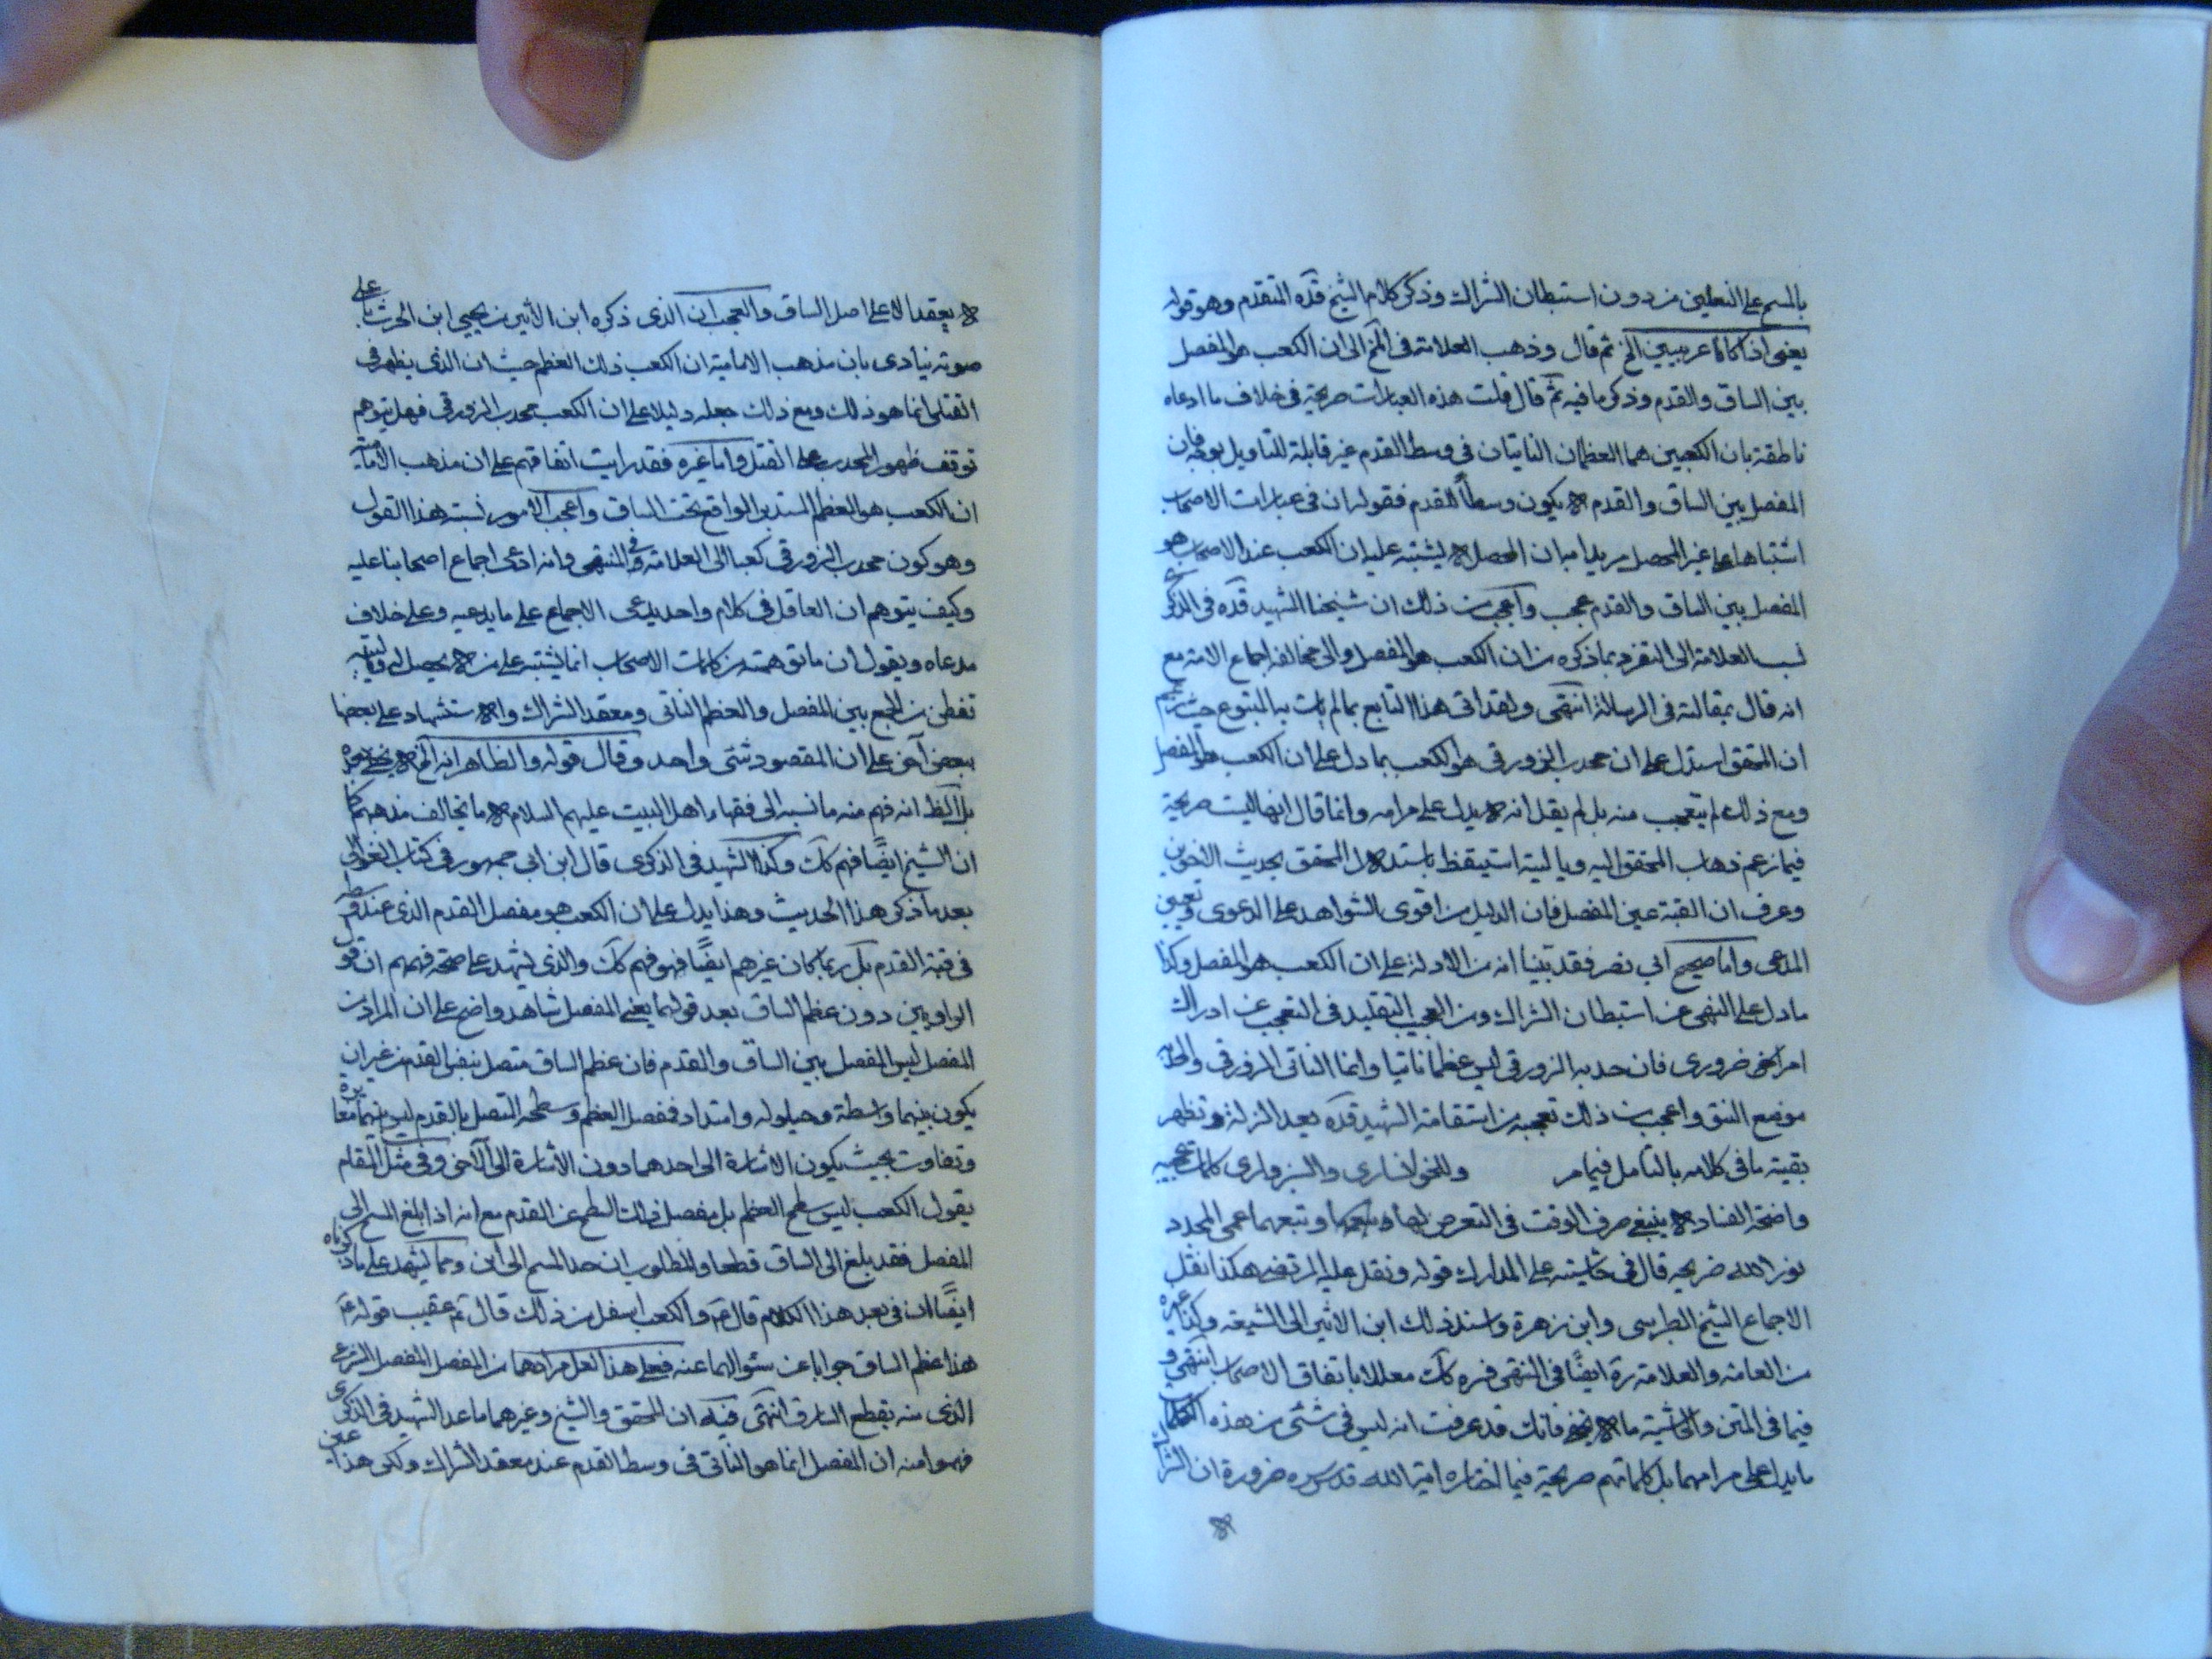 بالمسح على النعلين من دون استبطان الشراك وذكر كلام الشيخ قده المتقدم وهو قوله
يعنى اذا كانا عربيين الخ ثم قال وذهب العلامة فى المخ الى ان الكعب هو المفصل
بين الساق والقدم وذكر ما فيه ثم قال قلت هذه العبارات صريحة فى خلاف ما ادعاه
ناطقة بان الكعبين هما العظمان الناتيان فى وسط القدم غير قابلة للتاويل بوجه فان
المفصل بين الساق والقدم لا يكون وسطاً للقدم فقوله ان فى عبارات الاصحاب
اشتباها على غير المحصل مريدا به ان المحصل لا يشتبه عليه ان الكعب عند الاصحاب هو
المفصل بين الساق والقدم عجيب واعجب من ذلك ان شيخنا الشهيد قده فى الذكرى
نسب العلامة الى التفرد بما ذكره من ان الكعب هو المفصل والى مخالفة اجماع الامة مع
انه قال بمقالته فى الرسالة انتهى ولقد اتى هذا التابع بما لم يات به المتبوع حيث زعم
ان المحقق استدل على ان محدب الزورقى هو الكعب بما دل على ان الكعب هو المفصل
ومع ذلك لم يتعجب منه بل لم يقل انه لا يدل على مرامه وانما قال انها ليست صريحة
فيما زعم ذهاب المحقق اليه ويا ليته استيقظ باستدلال المحقق بحديث الاخوين
وعرف ان القبة عين المفصل فان الدليل من اقوى الشواهد على الدعوى وتعيين
المدعى واما صحيح ابى نصر فقد بينا انه من الادلة على ان الكعب هو المفصل وكذا
ما دل على النهى عن استبطان الشراك ومن العجيب التقليد فى التعجب عن ادراك
امر ضرورى فان حدبة الزورقى ليس عظما ناتيا وانما الناتى الزورقى والحدبة
موضع النتو واعجب من ذلك تعجبه من استقامة الشهيد قده بعد الزلة وتظهر
بقية ما فى كلامه بالتامل فيما مر وللخوانسارى والسبزوارى كلمات عجيبة
واضحة الفساد لا ينبغى صرف الوقت فى التعرض لها وتبعهما عمى المجدد
نور الله ضريحه قال فى حاشيته على المدارك قوله ونقل عليه المرتضى هكذا نقل
الاجماع الشيخ الطبرسى وابن زهرة واسند ذلك ابن الاثير الى الشيعة وكذا غيره
من العامة والعلامة ره ايضاً فى المنتهى فسره كك معللا باتفاق الاصحاب انتهى و
فيما فى المتن والحاشية ما لا يخفى فانك قد عرفت انه ليس فى شئ من هذه الكلمات
ما يدل على مرامهما بل كلماتهم صريحة فيما اختاره اية الله قدس سره ضرورة ان الشراك
لا
لا يعقد الا على اصل الساق والعجب ان الذى ذكره ابن الأثير من يحيى ابن الحرث باعلى
صوته ينادى بان مذهب الامامية ان الكعب ذلك العظم حيث ان الذى يظهر فى
القتلى انما هو ذلك ومع ذلك جعله دليلا على ان الكعب محدب الزورقى فهل يتوهم
توقف ظهور المحدب على القتل واما غيره فقد رايت اتفاقهم على ان مذهب الأمامية
ان الكعب هو العظم المستدير الواقع تحت الساق واعجب الأمور نسبة هذا القول
وهو كون محدب الزورقى كعبا الى العلامة فى المنتهى وانه ادعى اجماع اصحابنا عليه
وكيف يتوهم ان العاقل فى كلام واحد يدعى الاجماع على ما يدعيه وعلى خلاف
مدعاه ويقول ان ما توهمته من كلمات الاصحاب انما يشتبه على من لا تحصيل له وياليته
تفطن من الجمع بين المفصل والعظم الناتى ومعقد الشراك والاستشهاد على بعضها
ببعض آخر على ان المقصود شئى واحد وقال قوله والظاهر انه الخ لا يخفى
بل الظ انه فهم منه ما نسبه الى فقهاء اهل البيت عليهم السلام لا ما يخالف مذهبهم كما
ان الشيخ ايضاً فهم كك وكذا الشهيد فى الذكرى قال ابن ابى جمهور فى كتاب الغوالى
بعد ما ذكر هذا الحديث وهذا يدل على ان الكعب هو مفصل القدم الذى عند وسط
فى قبة القدم بل ربما كان غيرهم ايضاً فهو فهم كك والذى يشهد على صحة فهمهم ان قول
الراويين دون عظم الساق بعد قولهما يعنى المفصل شاهد واضح على ان المراد من
المفصل ليس المفصل بين الساق والقدم فان عظم الساق متصل بنفس القدم من غير ان
يكون بينهما واسطة وحيلولة وامتداد فمفصل العظم وسطحه المتصل بالقدم ليس بينهما مغايرة
وتفاوت بحيث يكون الاشارة الى احدهما دون الاشارة الى الآخر وفى مثل المقام
يقول الكعب ليس سطح العظم بل مفصل ذلك السطح عن القدم مع انه اذا بلغ المسح الى
المفصل فقد بلغ الى الساق قطعا والمطلوب ان حد المسح الى اين ومما يشهد على ما ذكرناه
ايضاً ان فى بعد هذا الكلام قال م والكعب اسفل من ذلك قال ثم عقيب قوله م
هذا عظم الساق جوابا عن سئوالهما عنه فعلى هذا لعل مرادهما من المفصل المفصل الشرعى
الذى منه يقطع السارق انتهى فيه ان المحقق والشيخ وغيرهما ما عدا الشهيد فى الذكرى
فهموا منه ان المفصل انما هو الناتى فى وسط القدم عند معقد الشراك ولكن هذا عين